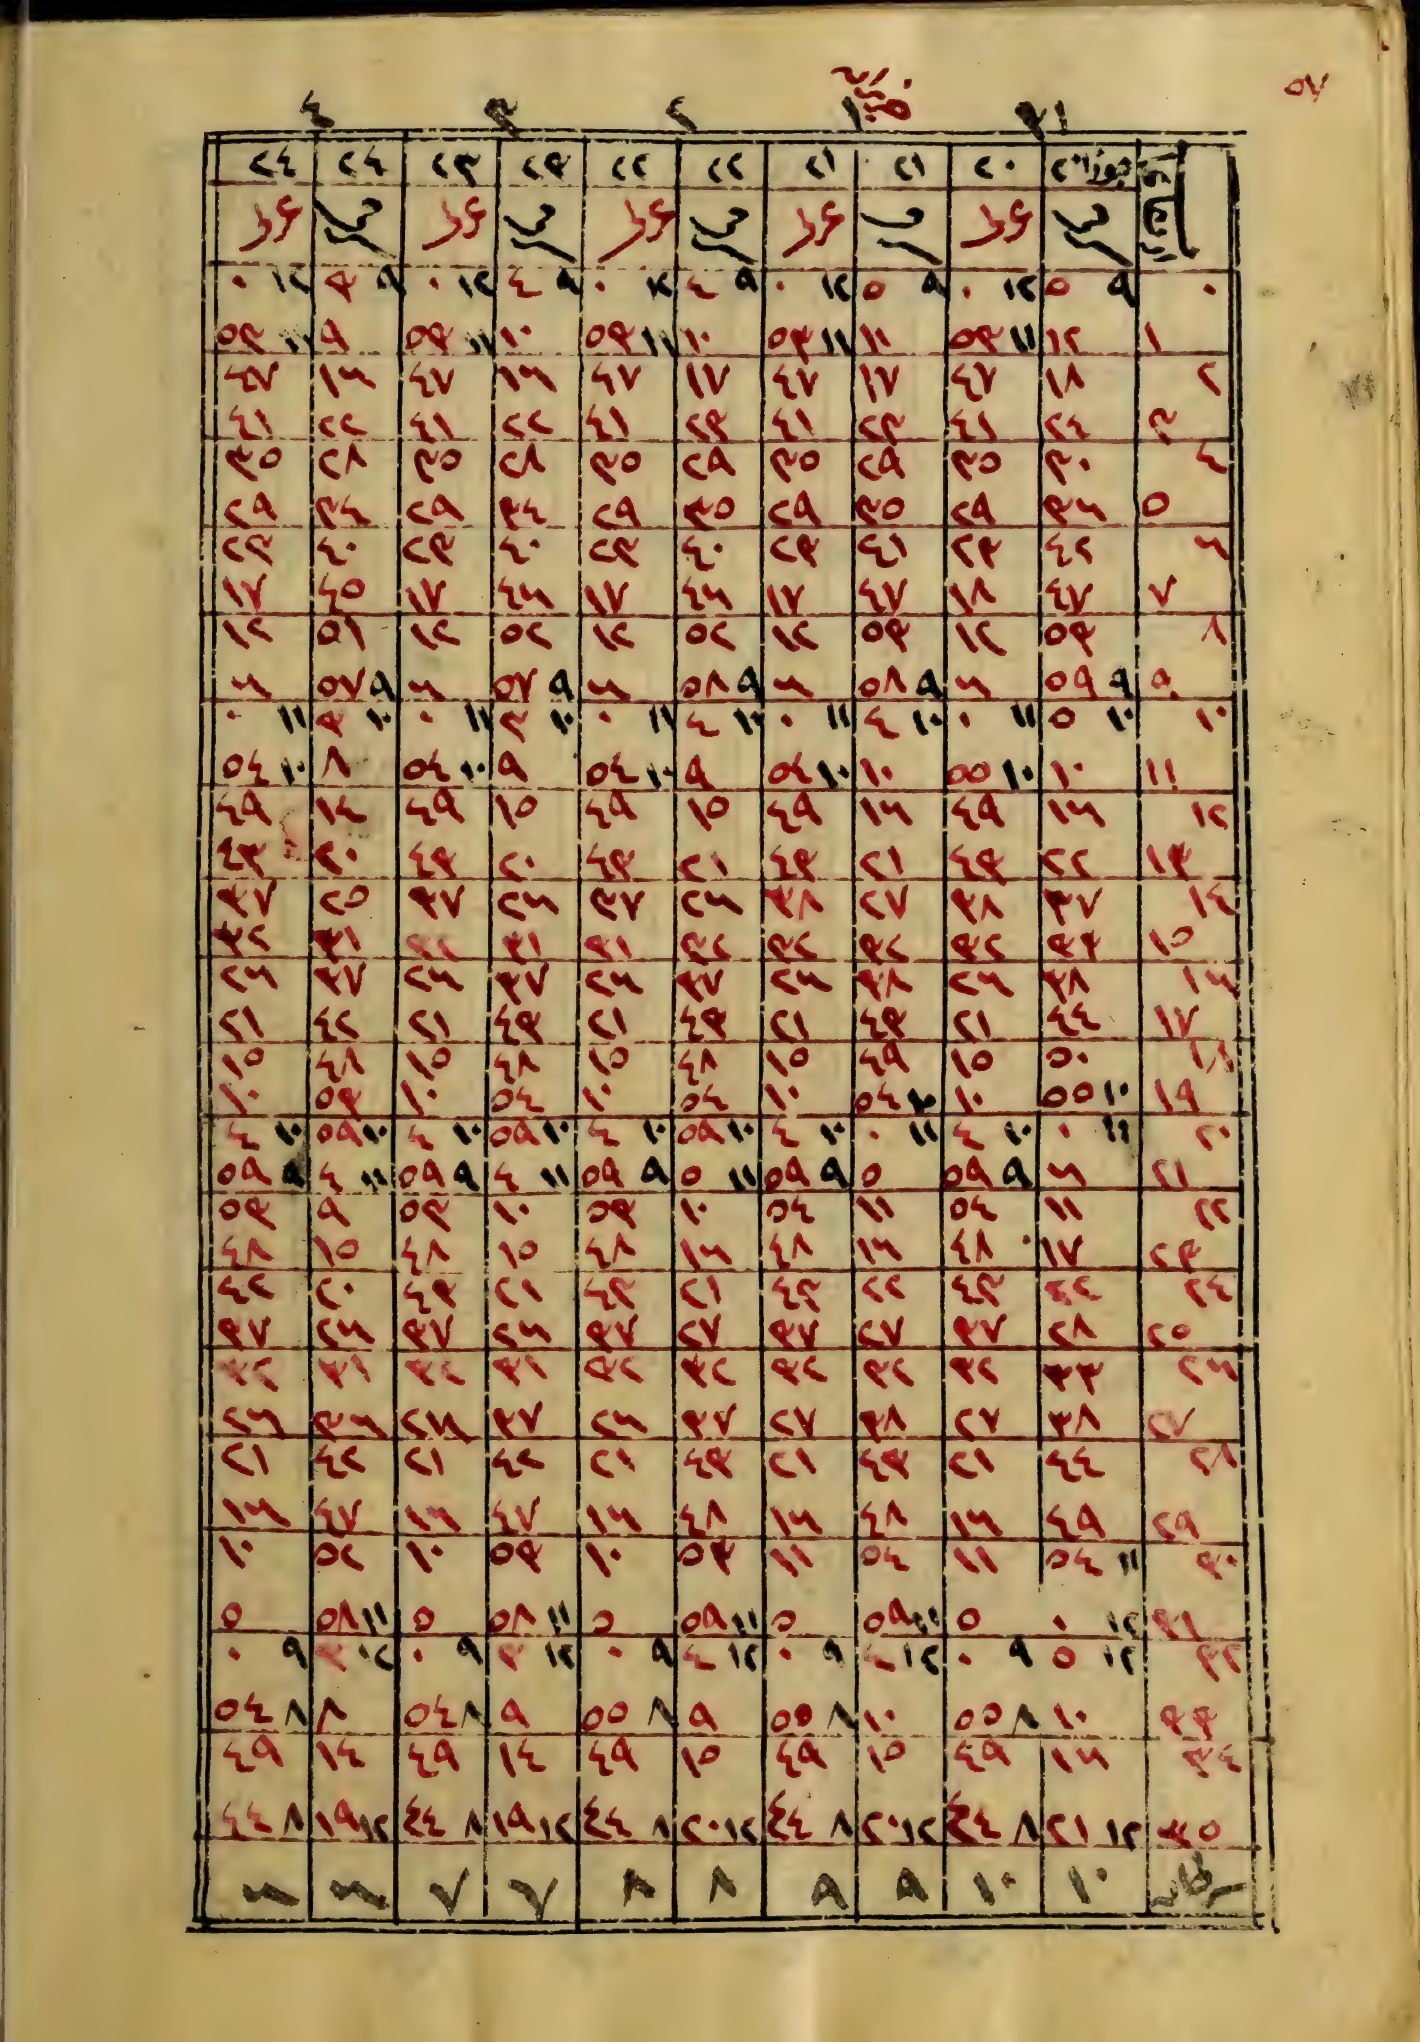 ٥٧
٣١ ١ ٢ ٣ ٤
جوزا ٢٠ ٢٠ ٢١ ٢١ ٢٢ ٢٢ ٢٣ ٢٣ ٢٤ ٢٤
٠ ٩ ٥ ١٢ ٠ ٩ ٥ ١٢ ٠ ٩ ٤ ١٢ ٠ ٩ ٤ ١٢ ٠ ٩ ٣ ١٢ ٠
١ ١٢ ١١ ٥٣ ١١ ١١ ٥٣ ١٠ ١١ ٥٣ ١٠ ١١ ٥٣ ٩ ١١ ٥٣
٢ ١٨ ٤٧ ١٧ ٤٧ ١٧ ٤٧ ١٦ ٤٧ ١٦ ٤٧
٣ ٢٤ ٤١ ٢٣ ٤١ ٢٣ ٤١ ٢٢ ٤١ ٢٢ ٤١
٤ ٣٠ ٣٥ ٢٩ ٣٥ ٢٩ ٣٥ ٢٨ ٣٥ ٢٨ ٣٥
٥ ٣٦ ٢٩ ٣٥ ٢٩ ٣٥ ٢٩ ٣٤ ٢٩ ٣٤ ٢٩
٦ ٤٢ ٢٣ ٤١ ٢٣ ٤٠ ٢٣ ٤٠ ٢٣ ٤٠ ٢٣
٧ ٤٧ ١٨ ٤٧ ١٧ ٤٦ ١٧ ٤٦ ١٧ ٤٥ ١٧
٨ ٥٣ ١٢ ٥٣ ١٢ ٥٢ ١٢ ٥٢ ١٢ ٥١ ١٢
٩ ٩ ٥٩ ٦ ٩ ٥٨ ٦ ٩ ٥٨ ٦ ٩ ٥٧ ٦ ٩ ٥٧ ٦
١٠ ١٠ ٥ ١١ ٠ ١٠ ٤ ١١ ٠ ١٠ ٤ ١١ ٠ ١٠ ٣ ١١ ٠ ١٠ ٣ ١١ ٠
١١ ١٠ ١٠ ٥٥ ١٠ ١٠ ٥٤ ٩ ١٠ ٥٤ ٩ ١٠ ٥٤ ٨ ١٠ ٥٤
١٢ ١٦ ٤٩ ١٦ ٤٩ ١٥ ٤٩ ١٥ ٤٩ ١٤ ٤٩
١٣ ٢٢ ٤٣ ٢١ ٤٣ ٢١ ٤٣ ٢٠ ٤٣ ٢٠ ٤٣
١٤ ٣٧ ٣٨ ٢٧ ٣٨ ٢٦ ٣٧ ٢٦ ٣٧ ٢٥ ٣٧
١٥ ٣٣ ٣٢ ٣٢ ٣٢ ٣٢ ٣١ ٣١ ٣١ ٣٢
١٦ ٣٨ ٢٦ ٣٨ ٢٦ ٣٧ ٢٦ ٣٧ ٢٦ ٣٧ ٢٦
١٧ ٤٤ ٢١ ٤٣ ٢١ ٤٣ ٢١ ٤٣ ٢١ ٤٢ ٢١
١٨ ٥٠ ١٥ ٤٩ ١٥ ٤٨ ١٥ ٤٨ ١٥ ٤٨ ١٥
١٩ ١٠ ٥٥ ١٠ ١٠ ٥٤ ١٠ ٥٤ ١٠ ٥٤ ١٠ ٥٣ ١٠
٢٠ ١١ ٠ ١٠ ٤ ١١ ٠ ١٠ ٤ ١٠ ٥٩ ١٠ ٤ ١٠ ٥٩ ١٠ ٤ ١٠ ٥٩ ١٠ ٤
٢١ ٦ ٩ ٥٩ ٥ ٩ ٥٩ ١١ ٥ ٩ ٥٩ ١١ ٤ ٩ ٥٩ ١١ ٤ ٩ ٥٩
٢٢ ١١ ٥٤ ١١ ٥٤ ١٠ ٥٣ ١٠ ٥٣ ٩ ٥٣
٢٣ ١٧ ٤٨ ١٦ ٤٨ ١٦ ٤٨ ١٥ ٤٨ ١٥ ٤٨
٢٤ ٢٢ ٤٣ ٢٢ ٤٣ ٢١ ٤٣ ٢١ ٤٣ ٢٠ ٤٢
٢٥ ٢٨ ٣٧ ٢٧ ٣٧ ٢٧ ٣٧ ٢٦ ٣٧ ٢٦ ٣٧
٢٦ ٣٣ ٣٢ ٣٢ ٣٢ ٣٢ ٣٢ ٣١ ٣٢ ٣١ ٣٢
٢٧ ٣٨ ٢٧ ٣٨ ٢٧ ٣٧ ٢٦ ٣٧ ٢٦ ٣٦ ٢٦
٢٨ ٤٤ ٢١ ٤٣ ٢١ ٤٣ ٢١ ٤٢ ٢١ ٤٢ ٢١
٢٩ ٤٩ ١٦ ٤٨ ١٦ ٤٨ ١٦ ٤٧ ١٦ ٤٧ ١٦
٣٠ ١١ ٥٤ ١١ ٥٤ ١١ ٥٣ ١٠ ٥٣ ١٠ ٥٢ ١٠
٣١ ١٢ ٠ ٥ ١١ ٥٩ ٥ ١١ ٥٩ ٥ ١١ ٥٨ ٥ ١١ ٥٨ ٥
٣٢ ١٢ ٥ ٩ ٠ ١٢ ٤ ٩ ٠ ١٢ ٤ ٩ ٠ ١٢ ٣ ٩ ٠ ١٢ ٣ ٩ ٠
٣٣ ١٠ ٨ ٥٥ ١٠ ٨ ٥٥ ٩ ٨ ٥٥ ٩ ٨ ٥٤ ٨ ٨ ٥٤
٣٤ ١٦ ٤٩ ١٥ ٤٩ ١٥ ٤٩ ١٤ ٤٩ ١٤ ٤٩
٣٥ ١٢ ٢١ ٨ ٤٤ ١٢ ٢٠ ٨ ٤٤ ١٢ ٢٠ ٨ ٤٤ ١٢ ١٩ ٨ ٤٤ ١٢ ١٩ ٨ ٤٤
١٠ ١٠ ٩ ٩ ٨ ٨ ٧ ٧ ٦ ٦